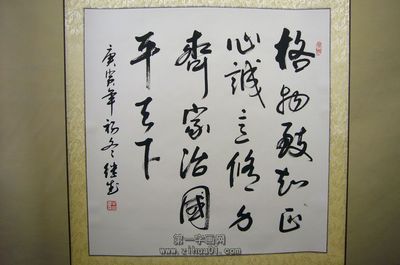 格物致知正
心誠意修身
齊家治國
平天下
庚寅年初冬
第一字画网
www.zihua01.com